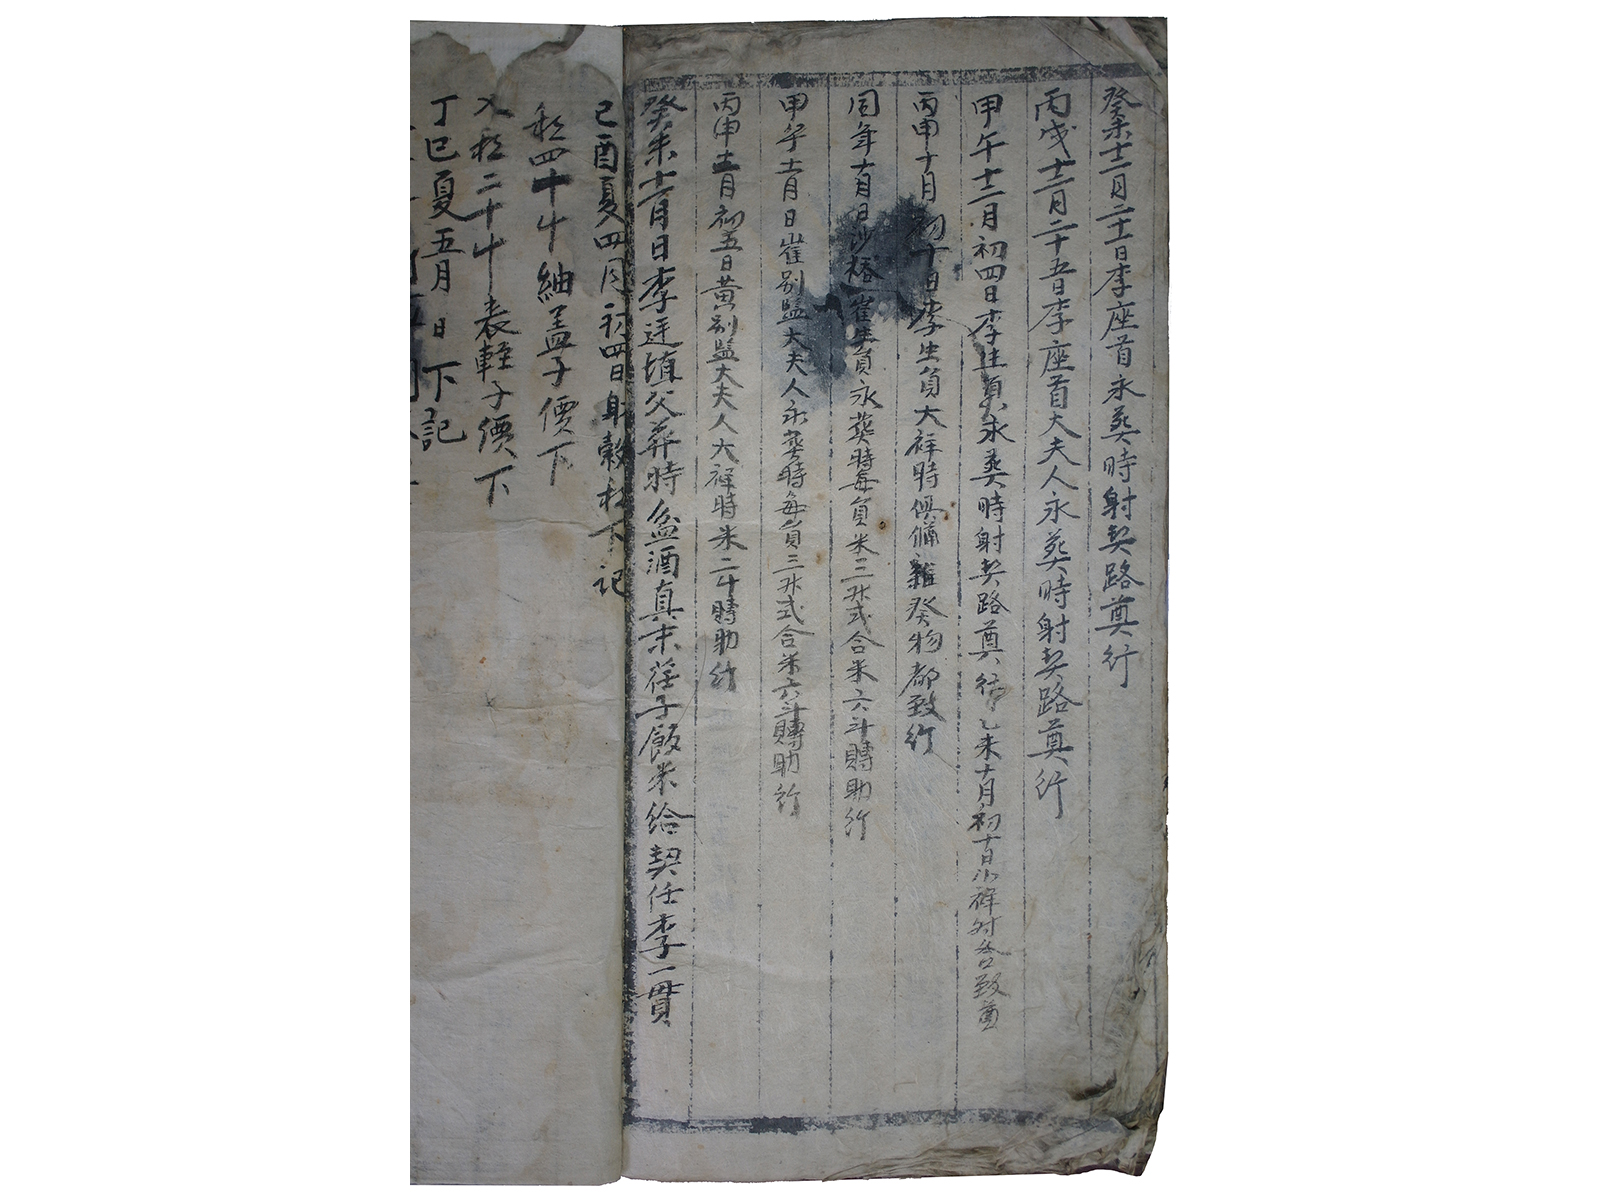 癸未十二月二十一日李座首永葬時射契路奠行
丙戌十二月二十五日李座首大夫人永葬時射契路奠行
甲午十二月初四日李生員永葬時射契路奠行乙未十月初十日小祥時各致奠
丙申十月初十日李生員大祥時俱備雜癸物都致行
同年十一月日沙 崔生員永葬時每員米三升式合米六斗賻助行
甲午十一月日崔別監大夫人永葬時每員三升式合米六斗賻助行
丙申十二月初五日黃別監大夫人大祥時米二斗賻助行
癸未十二月日李廷塡父葬時盆酒真末荏子飯米給契任李一貫
己酉夏四月初四日射穀租下記
租四十斗紬盖子價下
又租二十斗表輊子價下
丁巳夏五月日下記